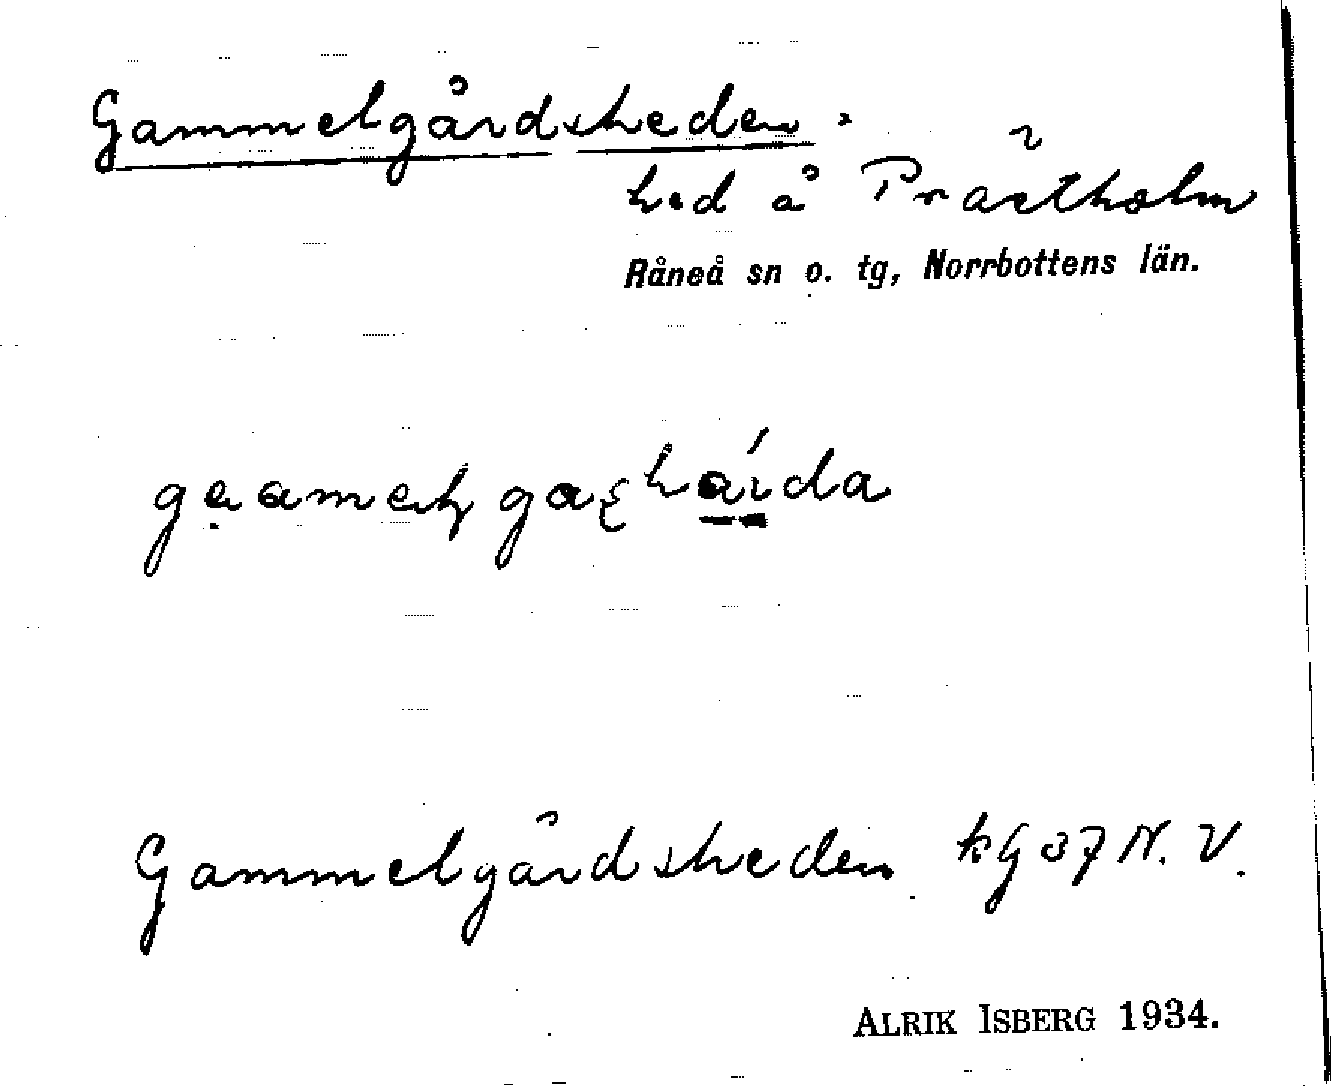 Gammelgårdsheden.
hed å Prästholm
Råneå sn o. tg, Norrbottens län.
Gammelgårdsheden kG 37 N. V.
ALRIK ISBERG 1934.